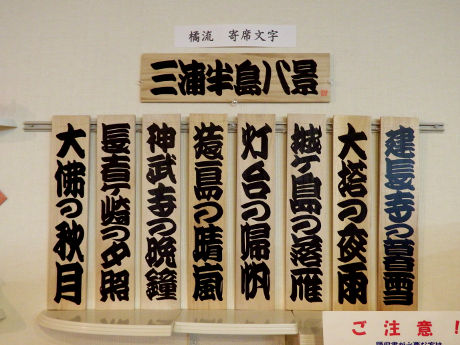 橘流 寄席文字
三浦半島八景
建長寺の暮雪
大塔の夜雨
城ヶ島の落雁
灯台の帰帆
猿島の晴嵐
神武寺の晩鐘
長者ヶ崎の夕照
大佛の秋月
ご注意！